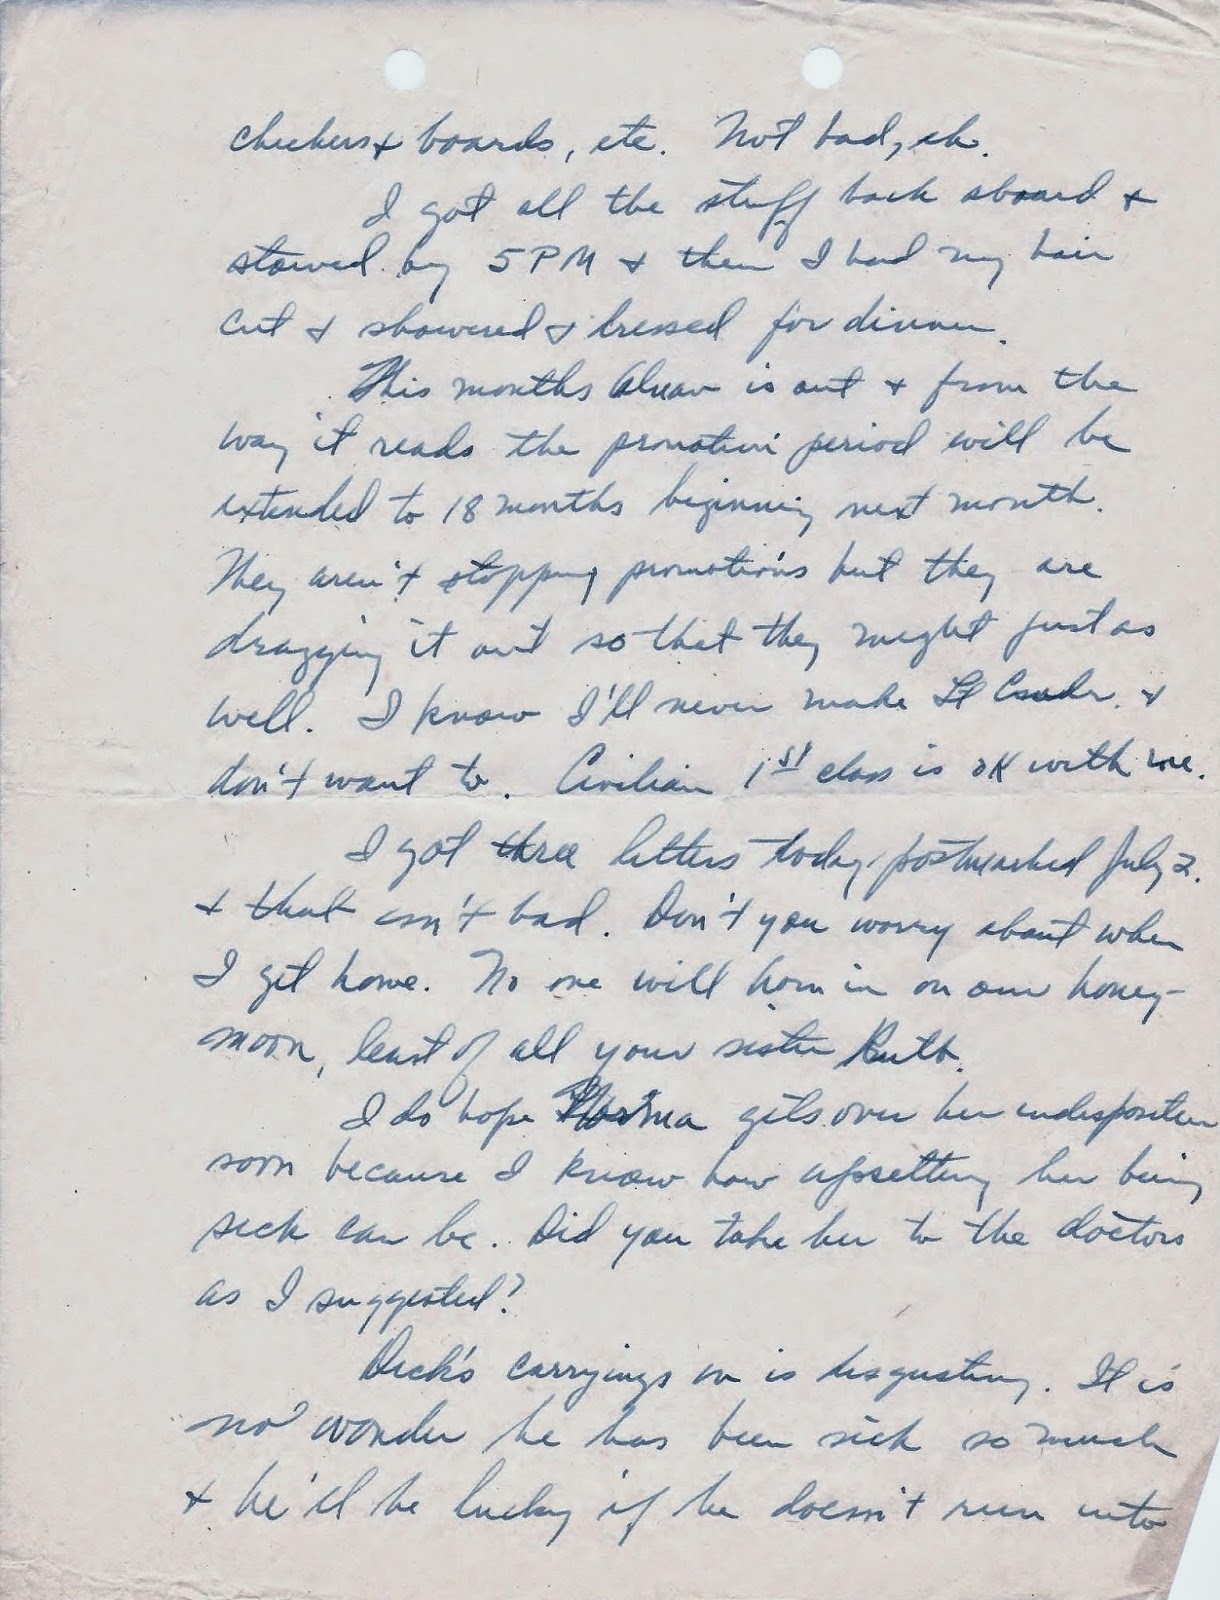 checkers & boards, etc. Not bad, eh.
I got all the stuff back aboard &
stowed by 5 PM & then I had my hair
cut & showered & dressed for dinner.
This months Alnav is out & from the
way it reads the promotion period will be
extended to 18 months beginning next month.
They aren't stopping promotions but they are
dragging it out so that they might just as
well. I know I'll never make Lt Comdr. &
don't want to. Civilian 1st class is OK with me.
I got three letters today postmarked July 2.
& that isn't bad. Don't you worry about when
I get home. No one will horn in on our honey-
moon, least of all your sister Ruth.
I do hope Norma gets over her indisposition
soon because I know how upsetting her being
sick can be. Did you take her to the doctors
as I suggested?
Dick's carryings on is disgusting. It is
no wonder he has been sick so much
& he'll be lucky if he doesn't run into